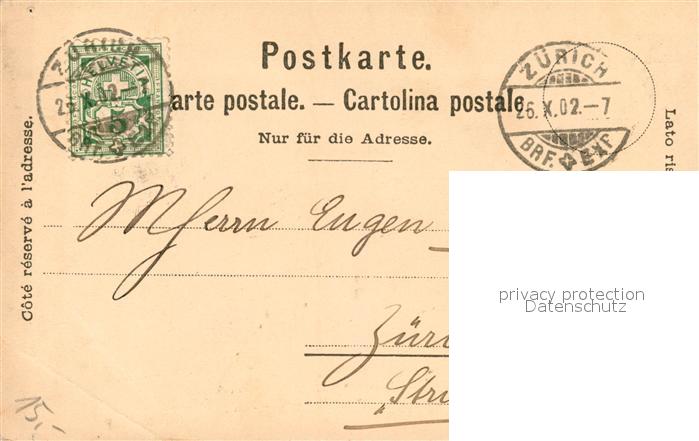 Postkarte.
arte postale. — Cartolina postale
Nur für die Adresse.
Côté réservé à l'adresse.
Lato ris
HELVETIA
5
ZÜRICH
26.X.02.–7
BRF. EXP.
MHerrn Eugen
Züri
"Stru
15.-
privacy protection
Datenschutz